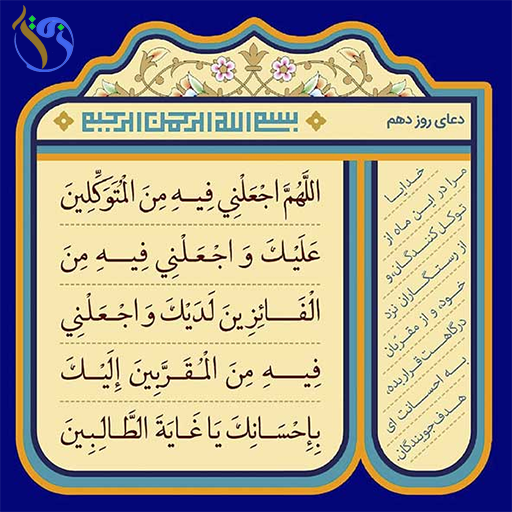 بسم الله الرحمن الرحیم
دعای روز دهم
اللَّهُمَّ اجْعَلْنِي فِيهِ مِنَ الْمُتَوَكِّلِينَ
عَلَيْكَ وَ اجْعَلْنِي فِيهِ مِنَ
الْفَائِزِينَ لَدَيْكَ وَ اجْعَلْنِي
فِيهِ مِنَ الْمُقَرَّبِينَ إِلَيْكَ
بِإِحْسَانِكَ يَا غَايَةَ الطَّالِبِينَ
خدایا
مرا در این ماه از
توکل‌کنندگان، و
از رستگاران نزد
خود، و از مقربان
درگاهت قرار بده،
به احسانت ای
هدف جویندگان.